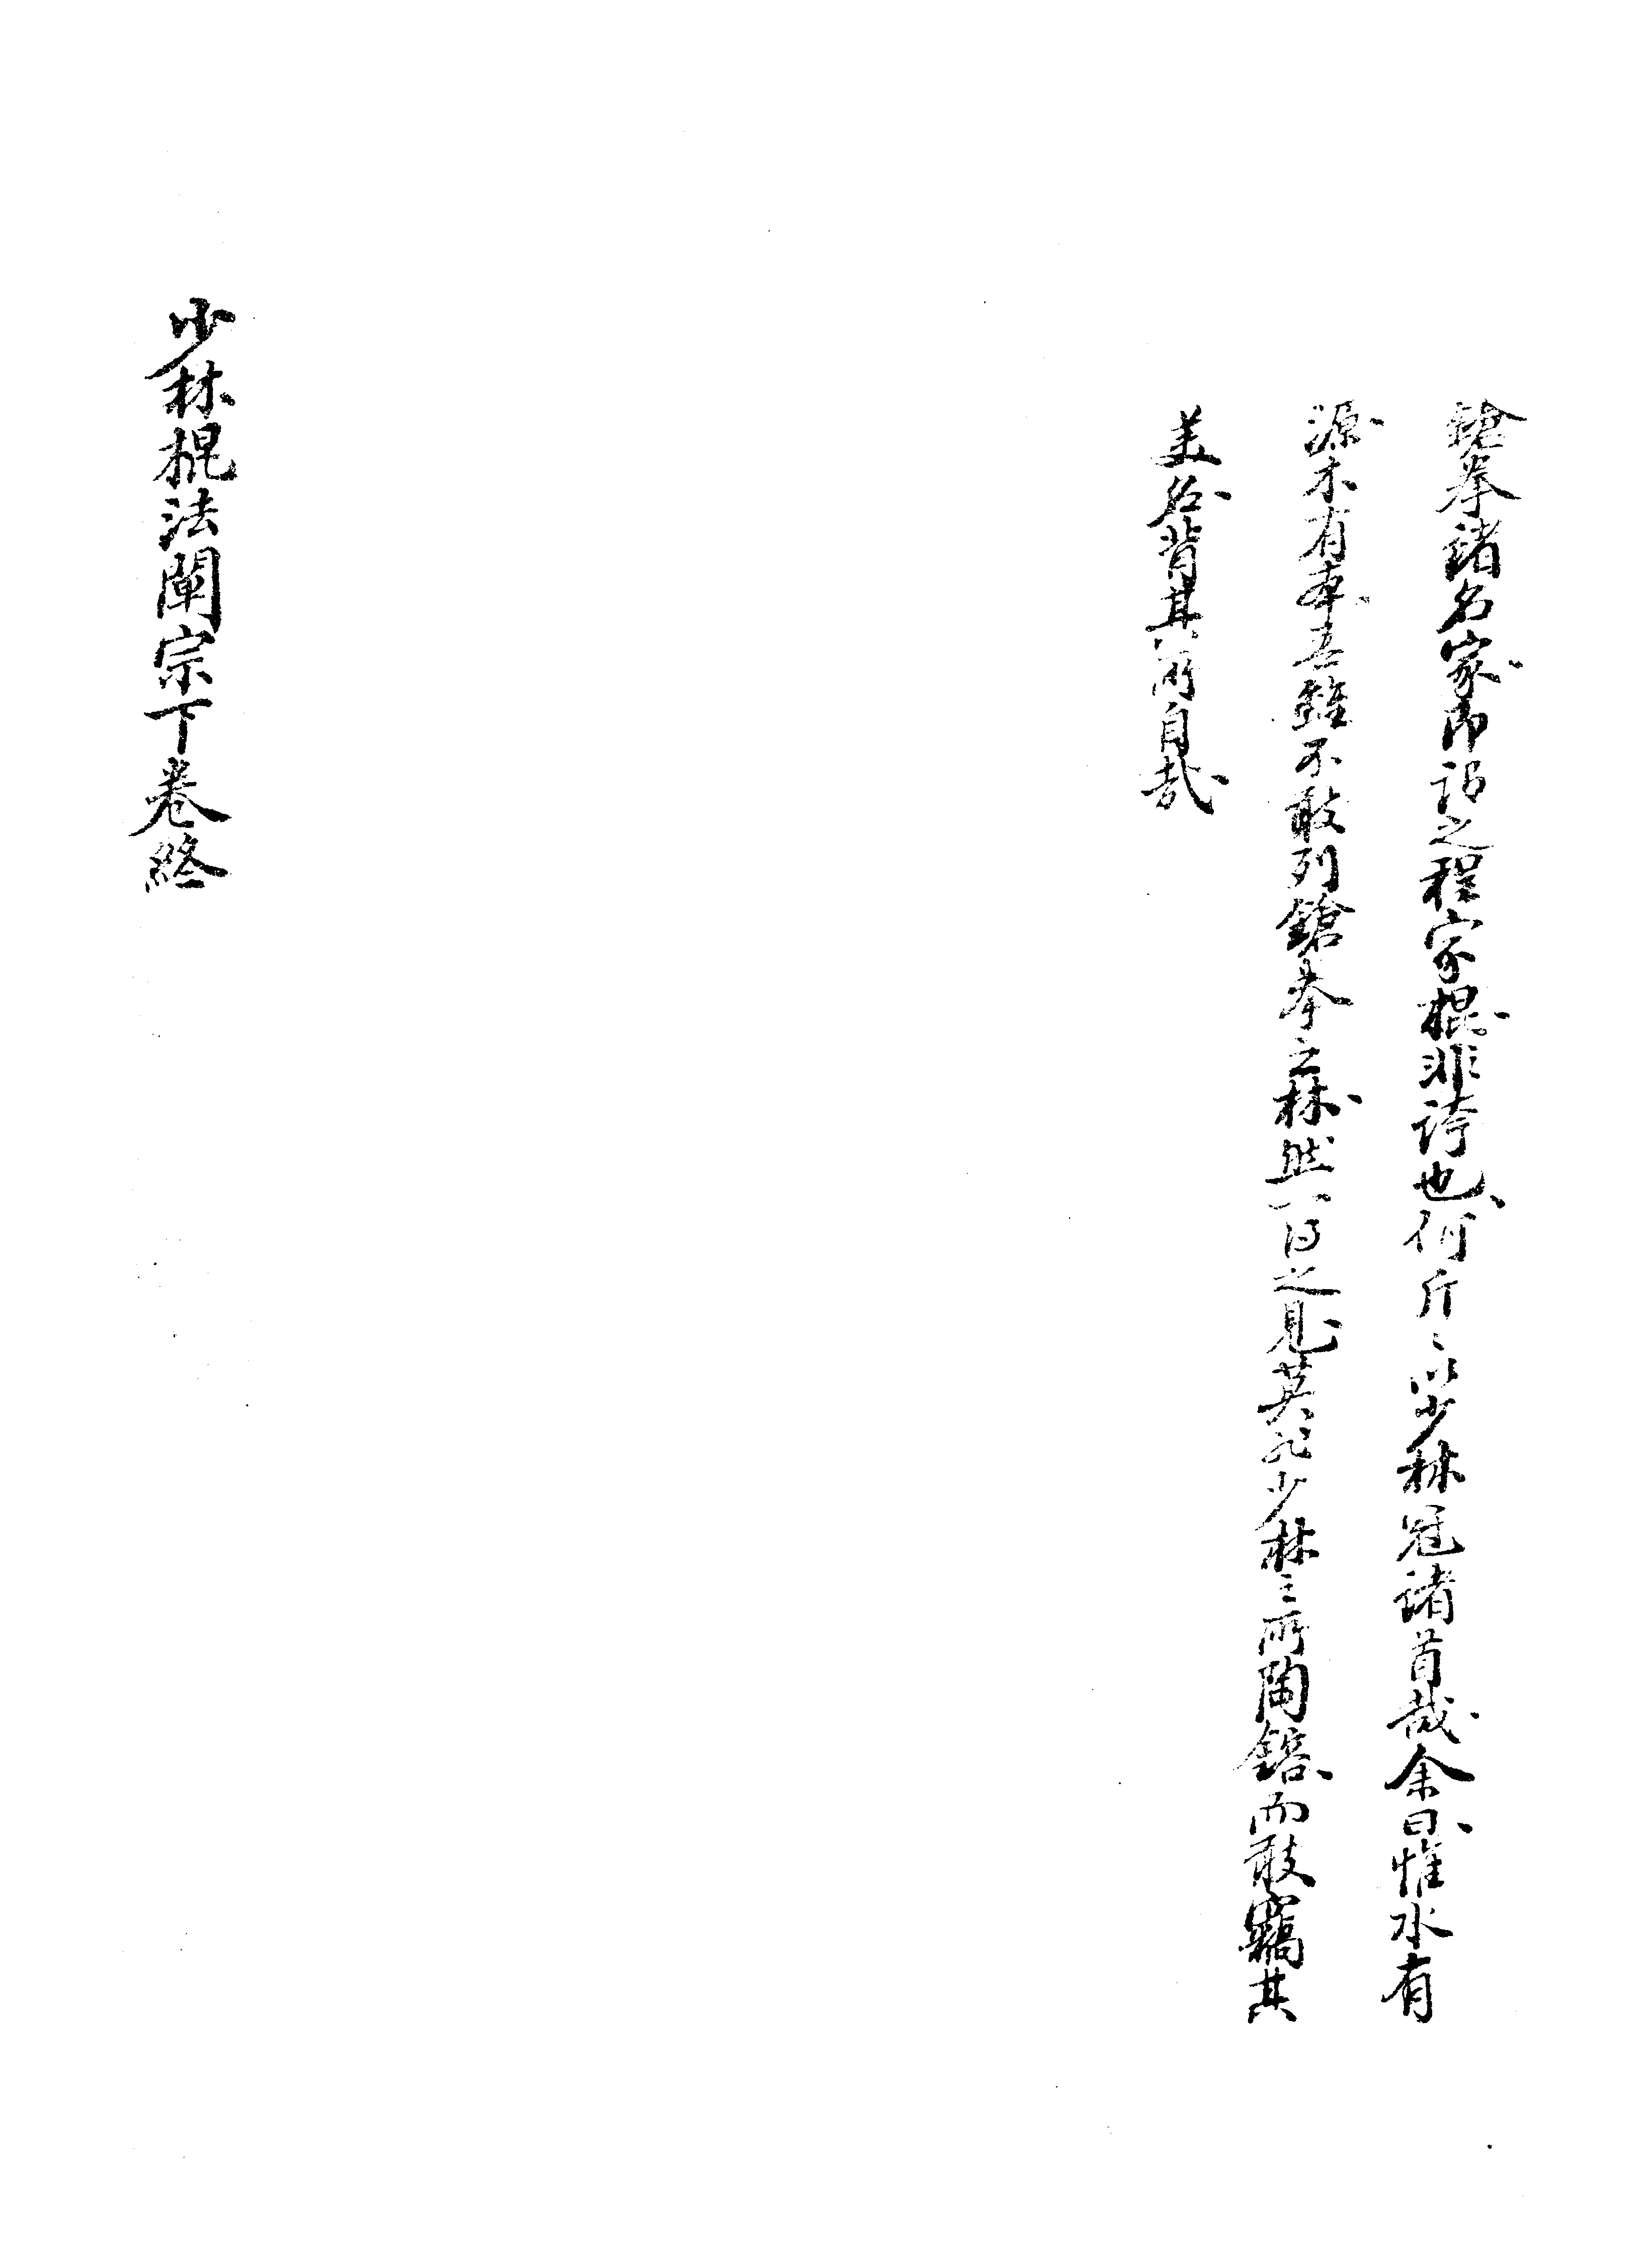 鎗拳諸名家、即詔之程家棍、非誇也、何斤〻以少林冠諸首哉、余曰、惟水有
源、木有本、吾雖不敢列鎗拳之林、然一得之見、莫非少林之所陶鎔、而敢竊其
美名、背其所自哉、
少林棍法闡宗下卷終